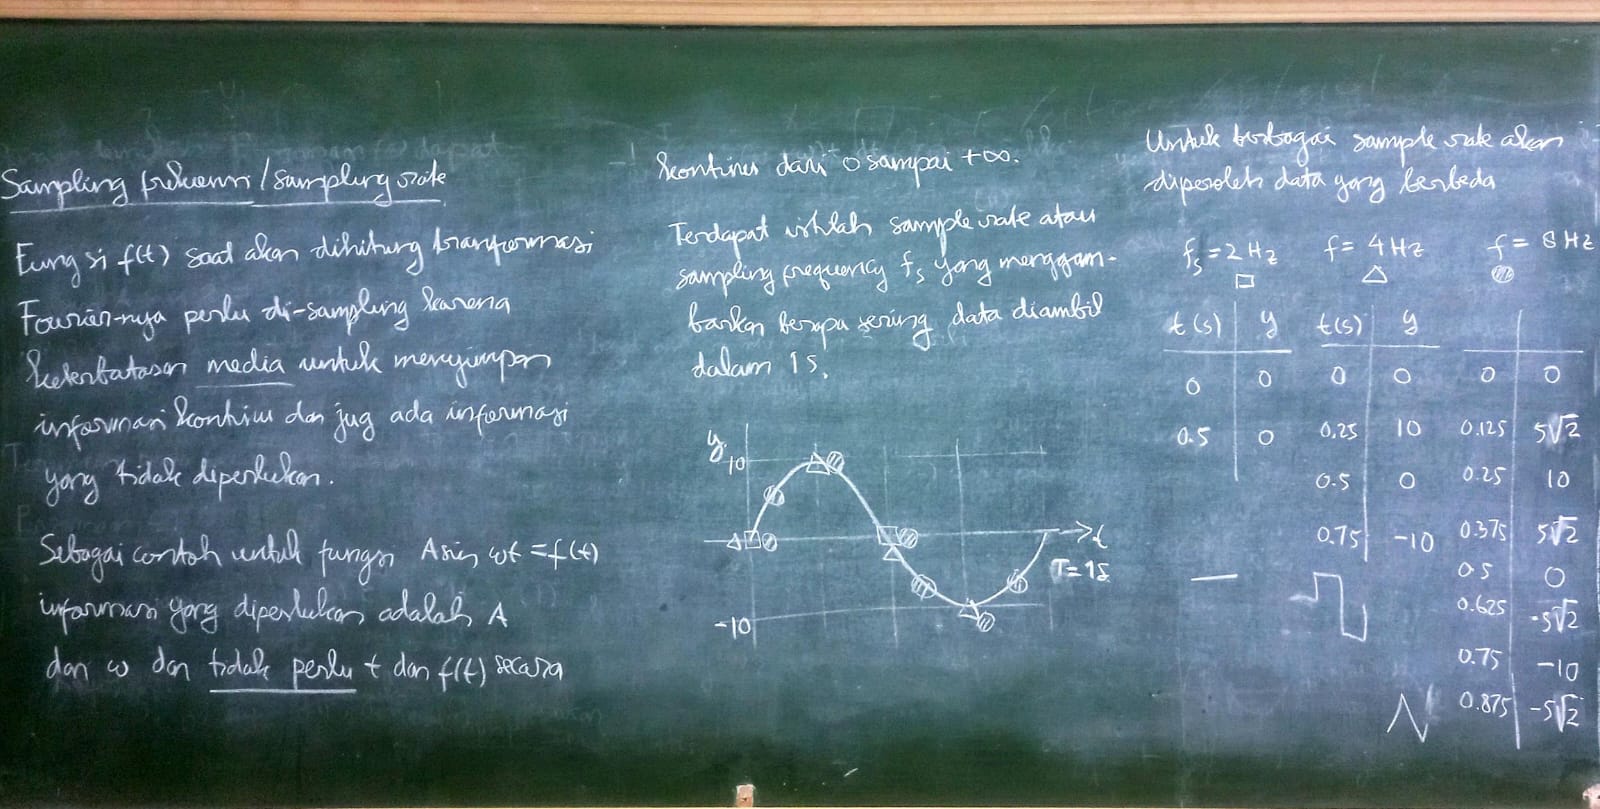 Sampling frekuensi / sampling rate
Fungsi f(t) saat akan dihitung tranformasi
Fourier-nya perlu di-sampling karena
keterbatasan media untuk menyimpan
informasi kontinu dan jug ada informasi
yang tidak diperlukan.
Sebagai contoh untuk fungsi A sin ωt = f(t)
informasi yang diperlukan adalah A
dan ω dan tidak perlu t dan f(t) secara
kontinu dari 0 sampai +∞.
Terdapat istilah sample rate atau
sampling frequency fs yang menggam-
barkan berapa sering data diambil
dalam 1 s.
y
10
t
T = 1s
-10
Untuk berbagai sample rate akan
diperoleh data yang berbeda
fs = 2 Hz f = 4 Hz f = 8 Hz
t(s) y t(s) y
0 0 0 0 0 0
0.5 0 0.25 10 0.125 5√2
0.5 0 0.25 10
0.75 -10 0.375 5√2
0.5 0
0.625 -5√2
0.75 -10
0.875 -5√2